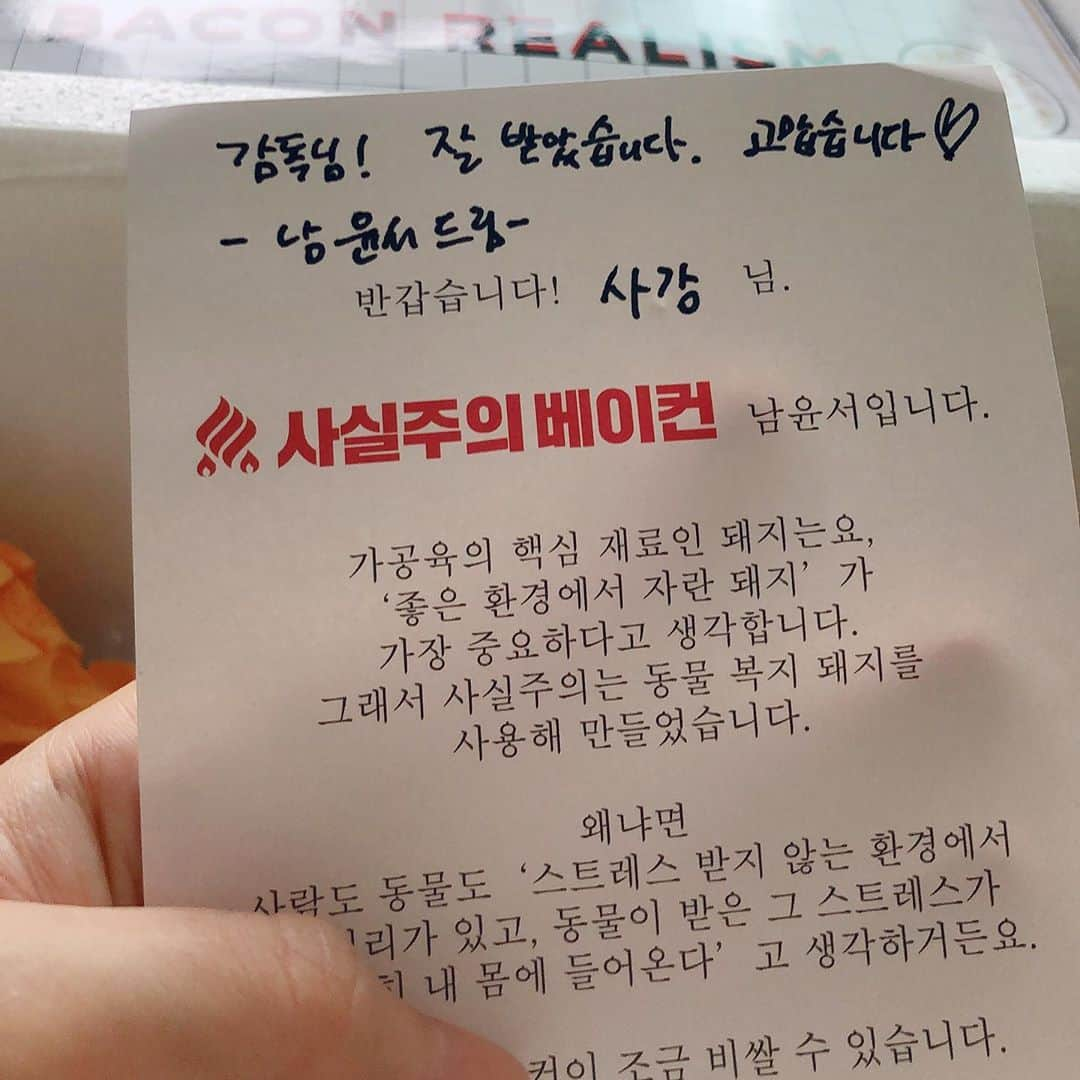 BACON REALISM
감독님! 잘 받았습니다. 고맙습니다
- 남윤서 드림-
반갑습니다! 사강 님.
사실주의베이컨 남윤서입니다.
가공육의 핵심 재료인 돼지는요,
‘좋은 환경에서 자란 돼지’ 가
가장 중요하다고 생각합니다.
그래서 사실주의는 동물 복지 돼지를
사용해 만들었습니다.
왜냐면
사람도 동물도 ‘스트레스 받지 않는 환경에서
리가 있고, 동물이 받은 그 스트레스가
내 몸에 들어온다’ 고 생각하거든요.
컨이 조금 비쌀 수 있습니다.